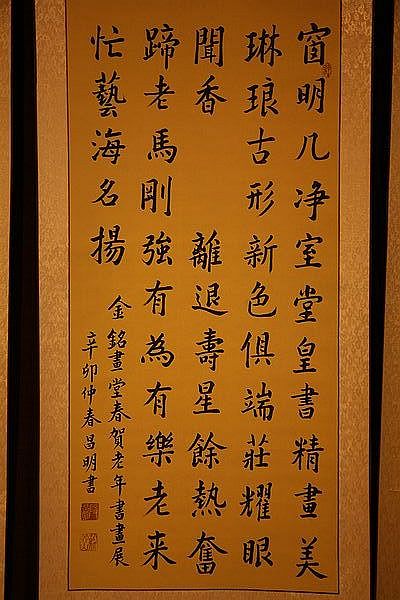 窗明几净室堂皇書精畫美
琳琅古形新色俱端莊耀眼
聞香 離退壽星餘熱奮
蹄老馬剛強有為有樂老来
忙藝海名揚
金銘畫堂春賀老年書畫展
辛卯仲春昌明書